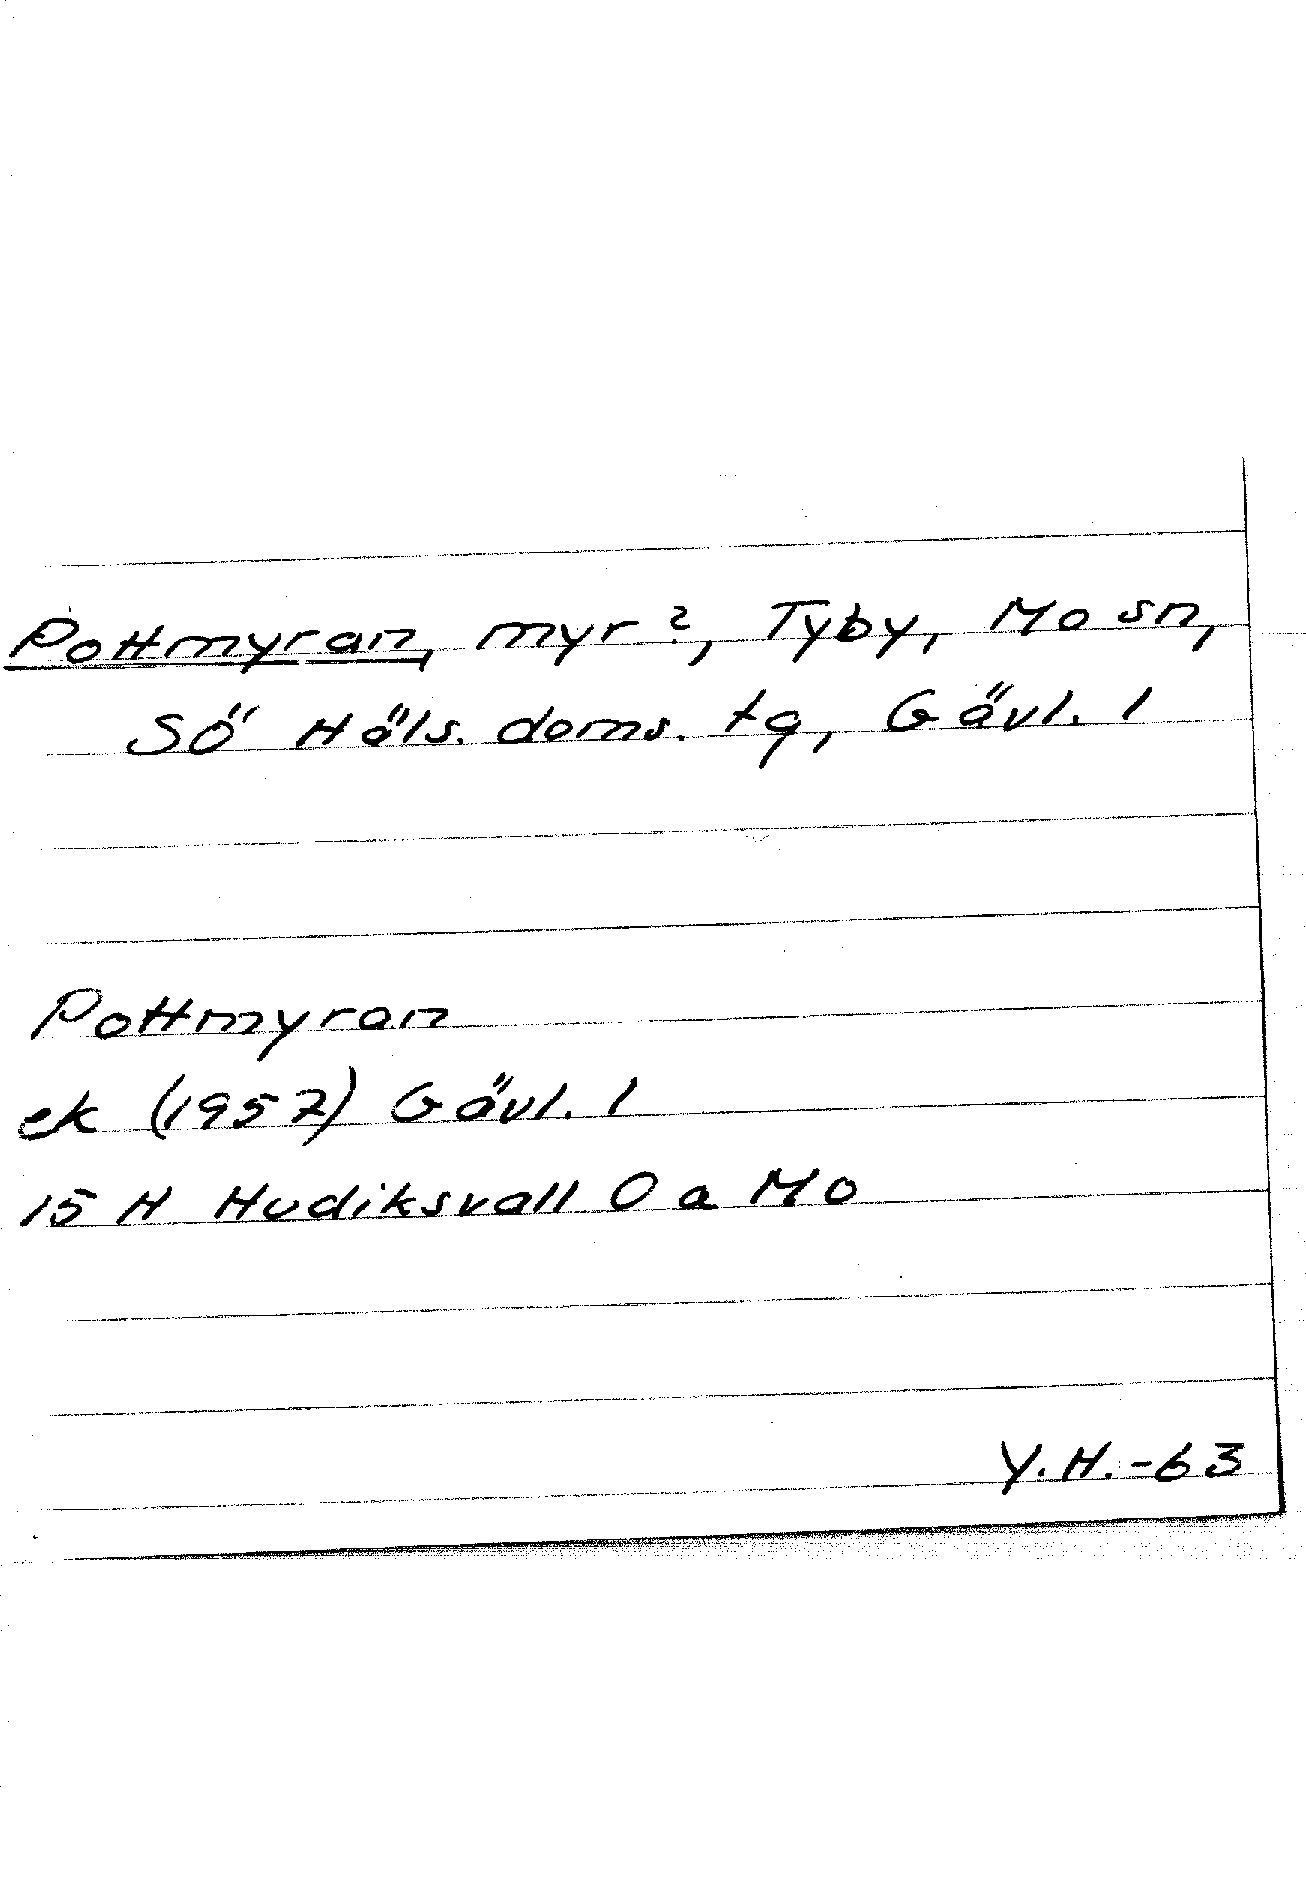 Pottmyran, myr?, Tyby, Mo sn,
Sö Häls. doms. tg, Gävl. l
Pottmyran
ek (1957) Gävl. l
15 H Hudiksvall 0 a Mo
Y.H.-63